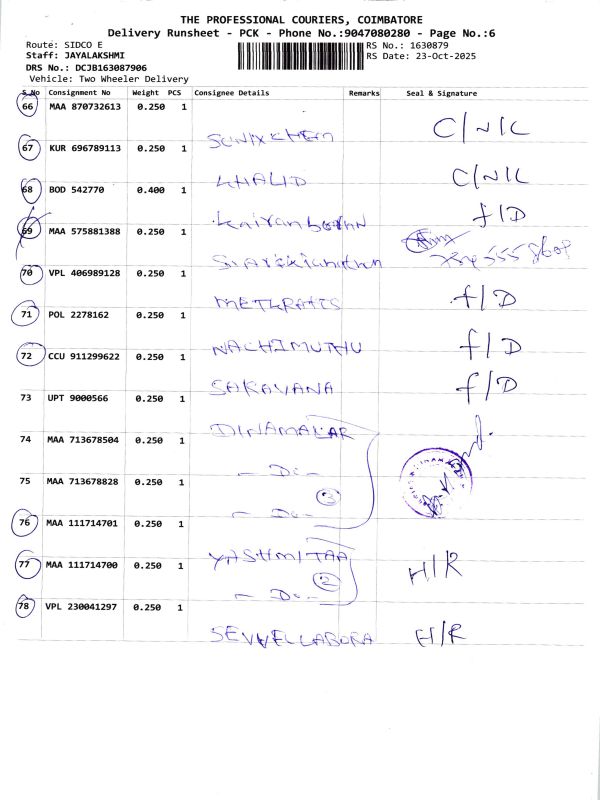 THE PROFESSIONAL COURIERS, COIMBATORE
Delivery Runsheet - PCK - Phone No.:9047080280 - Page No.:6
Route: SIDCO E
RS No.: 1630879
Staff: JAYALAKSHMI
RS Date: 23-Oct-2025
DRS No.: DCJB163087906
Vehicle: Two Wheeler Delivery
S.No Consignment No Weight PCS Consignee Details Remarks Seal & Signature
66 MAA 870732613 0.250 1
C/N/C
67 KUR 696789113 0.250 1
KHALID C/N/C
68 BOD 542770 0.400 1
f/D
69 MAA 575881388 0.250 1
70 VPL 406989128 0.250 1
f/D
71 POL 2278162 0.250 1
NACHIMUTHU f/D
72 CCU 911299622 0.250 1
SARAVANA f/D
73 UPT 9000566 0.250 1
DINAMALAR
74 MAA 713678504 0.250 1
- Do -
75 MAA 713678828 0.250 1
3
- Do -
76 MAA 111714701 0.250 1
YASHMITAA
77 MAA 111714700 0.250 1
H/R
2
- Do -
78 VPL 230041297 0.250 1
H/R